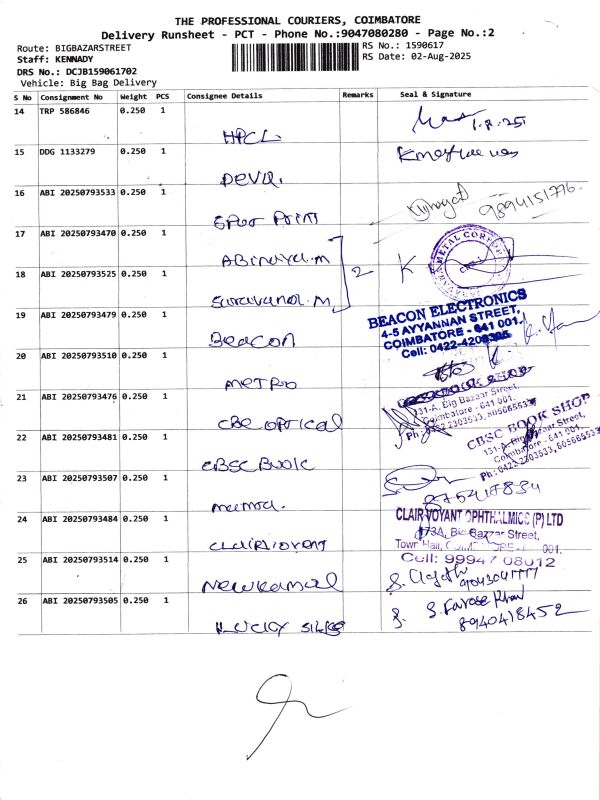 THE PROFESSIONAL COURIERS, COIMBATORE
Delivery Runsheet - PCT - Phone No.:9047080280 - Page No.:2
Route: BIGBAZARSTREET
RS No.: 1590617
Staff: KENNADY
RS Date: 02-Aug-2025
DRS No.: DCJB159061702
Vehicle: Big Bag Delivery
S No Consignment No Weight PCS Consignee Details Remarks Seal & Signature
14 TRP 586846 0.250 1
HPCL
15 DDG 1133279 0.250 1
DEVU.
16 ABI 20250793533 0.250 1
PRINT
9894151776
17 ABI 20250793470 0.250 1
ABINAYA.M
2
METAL CORPOR
18 ABI 20250793525 0.250 1
Saravana.M
19 ABI 20250793479 0.250 1
Beacon
BEACON ELECTRONICS
4-5 AYYANNAN STREET,
COIMBATORE - 641 001.
Cell: 0422-4208395
20 ABI 20250793510 0.250 1
METRO
21 ABI 20250793476 0.250 1
CBE OPTICAL
131-A, Big Bazaar Street,
Coimbatore - 641 001.
22 ABI 20250793481 0.250 1
CBSC BOOK
CBSC BOOK SHOP
131-A, Big Bazaar Street,
Coimbatore - 641 001.
Ph: 0422-2203533,
23 ABI 20250793507 0.250 1
24 ABI 20250793484 0.250 1
CLAIRIOVENT
CLAIR VOYANT OPHTHALMICS (P) LTD
173A, Big Bazzar Street,
Town Hall, 001.
Cell: 99947 08012
25 ABI 20250793514 0.250 1
NEWKAMAL
26 ABI 20250793505 0.250 1
LUCKY SILKS
8940418452